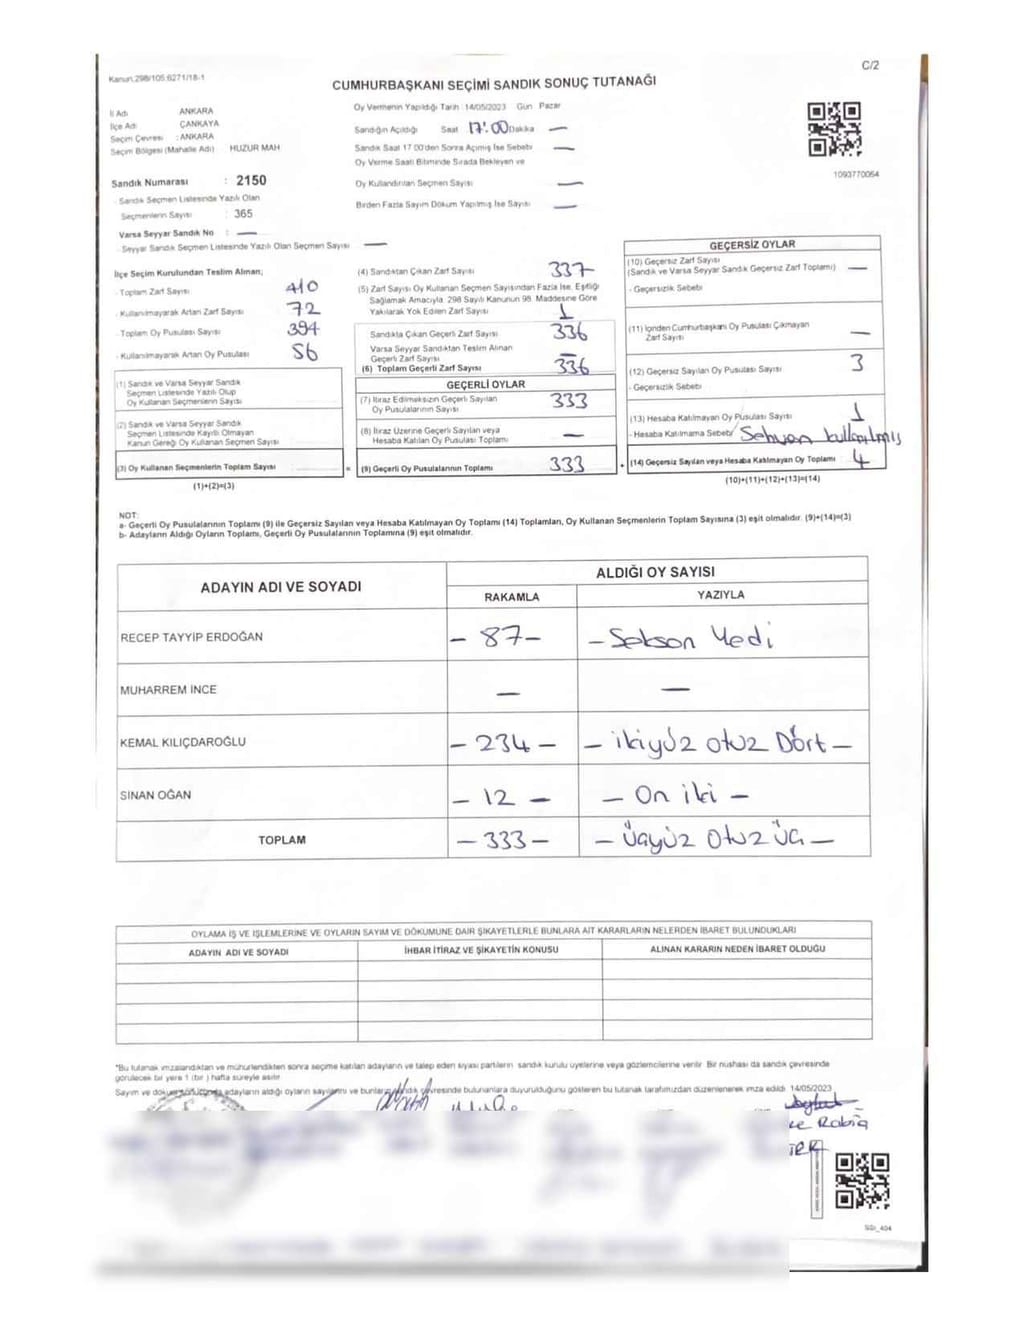 Kanun:298/105:6271/18-1
C/2
CUMHURBAŞKANI SEÇİMİ SANDIK SONUÇ TUTANAĞI
İl Adı ANKARA
İlçe Adı ÇANKAYA
Seçim Çevresi : ANKARA
Seçim Bölgesi (Mahalle Adı) HUZUR MAH
Sandık Numarası : 2150
- Sandık Seçmen Listesinde Yazılı Olan
Seçmenlerin Sayısı : 365
Varsa Seyyar Sandık No : —
- Seyyar Sandık Seçmen Listesinde Yazılı Olan Seçmen Sayısı —
Oy Vermenin Yapıldığı Tarih :14/05/2023 Gün Pazar
Sandığın Açıldığı Saat 17:00 Dakika —
Sandık Saat 17.00'den Sonra Açılmış İse Sebebi —
Oy Verme Saati Bitiminde Sırada Bekleyen ve
Oy Kullandırılan Seçmen Sayısı —
Birden Fazla Sayım Döküm Yapılmış İse Sayısı —
1093770064
İlçe Seçim Kurulundan Teslim Alınan;
- Toplam Zarf Sayısı 410
- Kullanılmayarak Artan Zarf Sayısı 72
- Toplam Oy Pusulası Sayısı 394
- Kullanılmayarak Artan Oy Pusulası 56
(1) Sandık ve Varsa Seyyar Sandık
Seçmen Listesinde Yazılı Olup
Oy Kullanan Seçmenlerin Sayısı
(2) Sandık ve Varsa Seyyar Sandık
Seçmen Listesinde Kayıtlı Olmayan
Kanun Gereği Oy Kullanan Seçmen Sayısı
(3) Oy Kullanan Seçmenlerin Toplam Sayısı =
(1)+(2)=(3)
(4) Sandıktan Çıkan Zarf Sayısı 337
(5) Zarf Sayısı Oy Kullanan Seçmen Sayısından Fazla İse, Eşitliği
Sağlamak Amacıyla, 298 Sayılı Kanunun 98. Maddesine Göre
Yakılarak Yok Edilen Zarf Sayısı 1
Sandıkta Çıkan Geçerli Zarf Sayısı 336
Varsa Seyyar Sandıktan Teslim Alınan
Geçerli Zarf Sayısı —
(6) Toplam Geçerli Zarf Sayısı 336
GEÇERLİ OYLAR
(7) İtiraz Edilmeksizin Geçerli Sayılan
Oy Pusulalarının Sayısı 333
(8) İtiraz Üzerine Geçerli Sayılan veya
Hesaba Katılan Oy Pusulası Toplamı —
(9) Geçerli Oy Pusulalarının Toplamı 333 +
GEÇERSİZ OYLAR
(10) Geçersiz Zarf Sayısı
(Sandık ve Varsa Seyyar Sandık Geçersiz Zarf Toplamı) —
- Geçersizlik Sebebi
(11) İçinden Cumhurbaşkanı Oy Pusulası Çıkmayan
Zarf Sayısı —
(12) Geçersiz Sayılan Oy Pusulası Sayısı 3
- Geçersizlik Sebebi
(13) Hesaba Katılmayan Oy Pusulası Sayısı 1
- Hesaba Katılmama Sebebi Sehven kullanılmış
(14) Geçersiz Sayılan veya Hesaba Katılmayan Oy Toplamı 4
(10)+(11)+(12)+(13)=(14)
NOT:
a- Geçerli Oy Pusulalarının Toplamı (9) ile Geçersiz Sayılan veya Hesaba Katılmayan Oy Toplamı (14) Toplamları, Oy Kullanan Seçmenlerin Toplam Sayısına (3) eşit olmalıdır. (9)+(14)=(3)
b- Adayların Aldığı Oyların Toplamı, Geçerli Oy Pusulalarının Toplamına (9) eşit olmalıdır.
ADAYIN ADI VE SOYADI
ALDIĞI OY SAYISI
RAKAMLA YAZIYLA
RECEP TAYYİP ERDOĞAN - 87 - - Seksen Yedi
MUHARREM İNCE — —
KEMAL KILIÇDAROĞLU - 234 - - ikiyüz otuz Dört -
SİNAN OĞAN - 12 - - On iki -
TOPLAM - 333 - - üçyüz Otuz üç -
OYLAMA İŞ VE İŞLEMLERİNE VE OYLARIN SAYIM VE DÖKÜMÜNE DAİR ŞİKAYETLERLE BUNLARA AİT KARARLARIN NELERDEN İBARET BULUNDUKLARI
ADAYIN ADI VE SOYADI İHBAR İTİRAZ VE ŞİKAYETİN KONUSU ALINAN KARARIN NEDEN İBARET OLDUĞU
*Bu tutanak imzalandıktan ve mühürlendikten sonra seçime katılan adayların ve talep eden siyasi partilerin sandık kurulu üyelerine veya gözlemcilerine verilir. Bir nushası da sandık çevresinde
görülecek bir yere 1 (bir ) hafta süreyle asılır.
Sayım ve döküm sonucunda adayların aldığı oyların sayılarını ve bunların sandık çevresinde bulunanlara duyurulduğunu gösteren bu tutanak tarafımızdan düzenlenerek imza edildi. 14/05/2023
Rabia